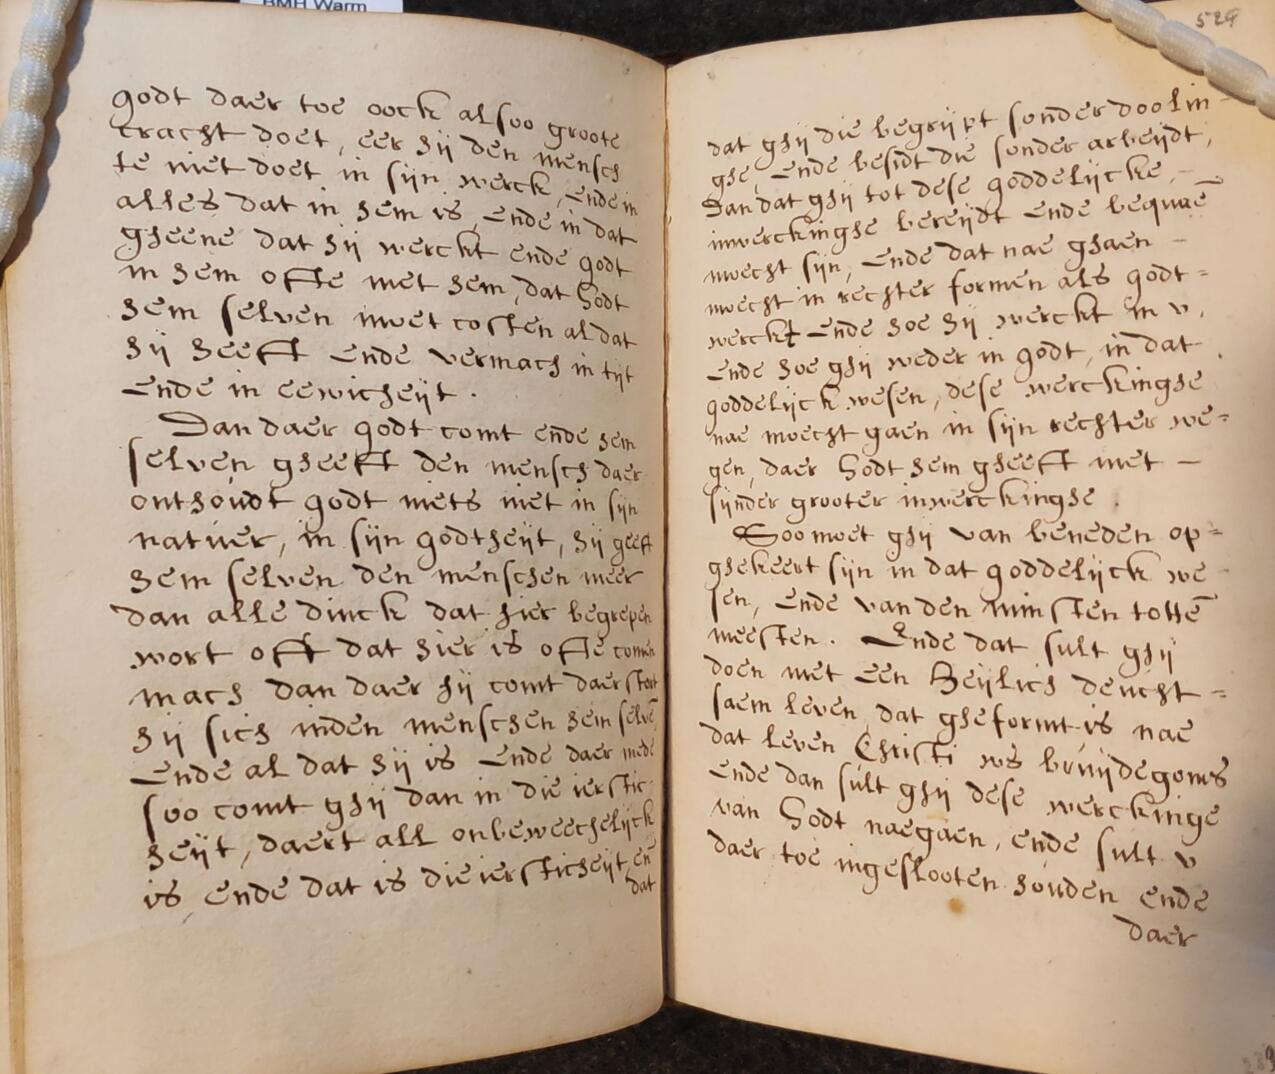 BMH Warm
godt daer toe oock alsoo groote
cracht doet, eer hij den mensch
te niet doet in sijn werck, ende in
alles dat in hem is, ende in dat
gheene dat hij werckt ende godt
in hem offte met hem, dat Godt
hem selven moet costen al dat
hij heefft ende vermach in tijt
ende in eewicheijt.
Dan daer godt comt ende hem
selven gheefft den mensch daer
onthoudt godt niets niet in sijn
natuer, in sijn godtheijt, hij geeft
hem selven den menschen meer
dan alle dinck dat hier begrepen
wort offt dat hier is offte comen
mach dan daer hij comt daer stort
hij sich inden menschen hem selvē
ende al dat hij is ende daer mede
soo comt ghij dan in die ierstic
heijt, daert all onbeweechelijck
is, ende dat is die iersticheijt en̄
dat
524
dat ghij die begrijpt sonder doolin-
ghe, ende besidt die sonder arbeijdt,
Dan dat ghij tot dese goddelijcke,
inwerckinghe bereijdt ende bequaē
moecht sijn, ende dat nae ghaen
moecht in rechter formen als godt=
werckt ende hoe hij werckt in v,
ende hoe ghij weder in godt, in dat
goddelijck wesen, dese werckinghe
nae moecht gaen in sijn rechter we=
gen, daer Godt hem gheefft met
sijnder grooter inwerckinghe.
Soo moet ghij van beneden op=
ghekeert sijn in dat goddelijck we-
sen, ende van den minsten tottē
meesten. Ende dat sult ghij
doen met een Heijlich deucht=
saem leven, dat gheformt is nae
dat leven Christi ws bruijdegoms
ende dan sult ghij dese werckinge
van Godt naegaen, ende sult v
daer toe ingeslooten houden ende
daer